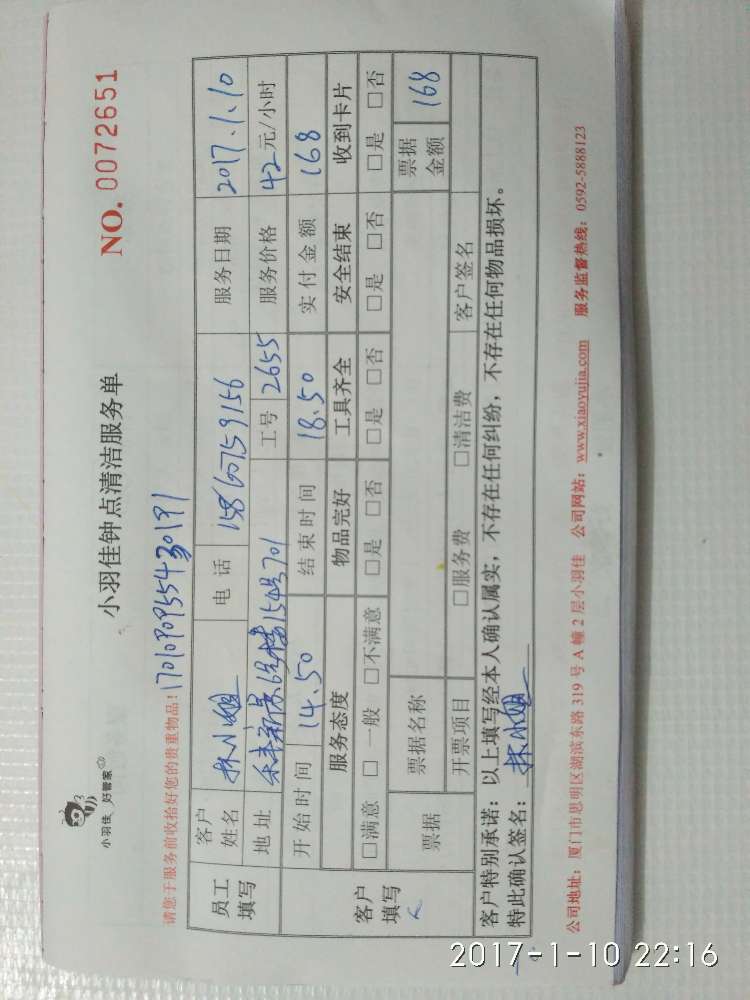 小羽佳 好管家
小羽佳钟点清洁服务单
NO. 0072651
请您于服务前收拾好您的贵重物品!
员工填写 客户姓名 林小姐 电话 服务日期 2017.1.10
地址 工号 2655 服务价格 42元/小时
客户填写 开始时间 14.50 结束时间 18.50 实付金额 168
服务态度 物品完好 工具齐全 安全结束 收到卡片
□满意 □一般 □不满意 □是 □否 □是 □否 □是 □否 □是 □否
票据 票据名称 票据金额 168
开票项目 □服务费 □清洁费 客户签名
客户特别承诺:以上填写经本人确认属实,不存在任何纠纷,不存在任何物品损坏。
特此确认签名:林小姐
公司地址:厦门市思明区湖滨东路 319 号 A 幢 2 层小羽佳 公司网站:www.xiaoyujia.com 服务监督热线:0592-5888123
2017-1-10 22:16